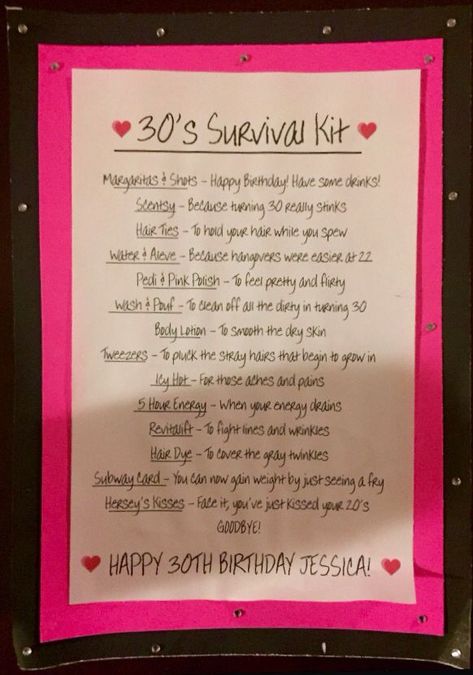 30's Survival Kit
Margaritas & Shots – Happy Birthday! Have some drinks!
Scentsy – Because turning 30 really stinks
Hair Ties – To hold your hair while you spew
Water & Aleve – Because hangovers were easier at 22
Pedi & Pink Polish – To feel pretty and flirty
Wash & Pouf – To clean off all the dirty in turning 30
Body Lotion – To smooth the dry skin
Tweezers – To pluck the stray hairs that begin to grow in
Icy Hot – For those aches and pains
5 Hour Energy – When your energy drains
Revitalift – To fight lines and wrinkles
Hair Dye – To cover the gray twinkles
Subway Card – You can now gain weight by just seeing a fry
Hersey's Kisses – Face it, you've just kissed your 20's
GOODBYE!
HAPPY 30TH BIRTHDAY JESSICA!